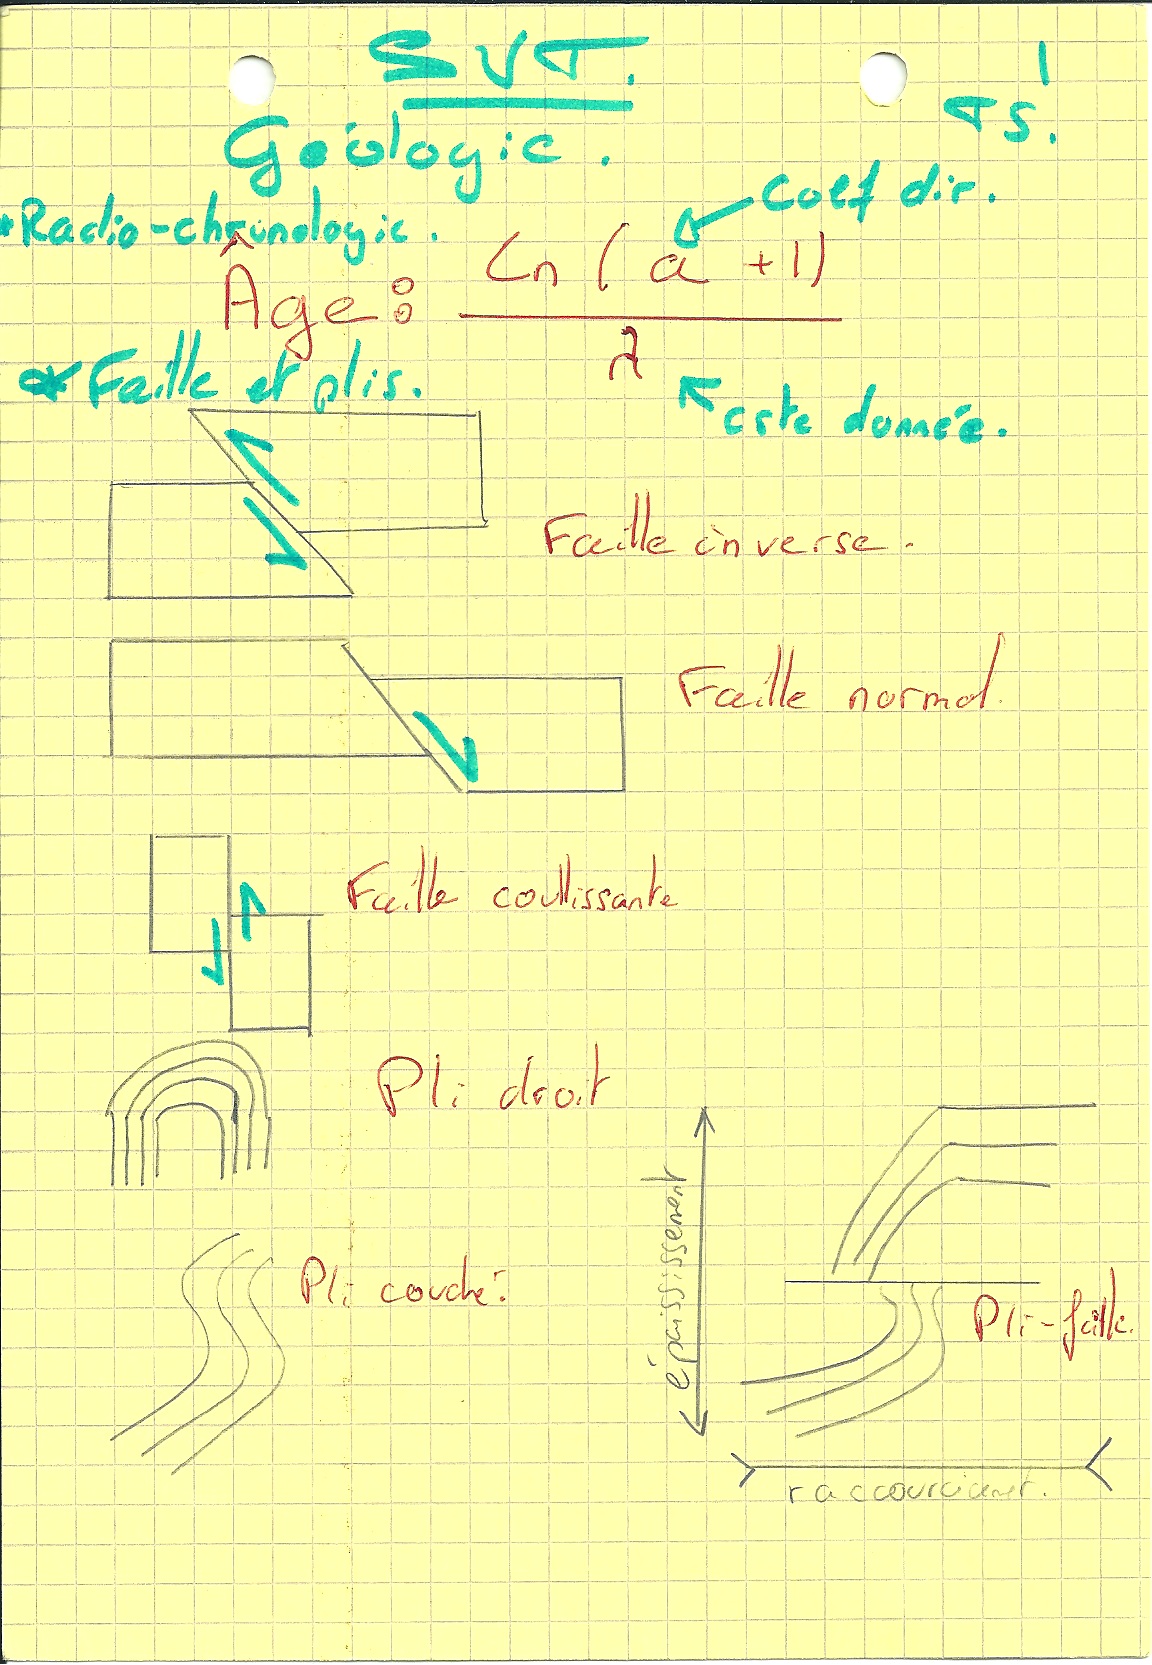 SVT.
1
TS.
Géologie.
*Radio-chronologie.
coef dir.
Âge: Ln(a+1)
λ
cste donnée.
* Faille et plis.
Faille inverse.
Faille normal.
Faille coullissante
Pli droit
épaississement
Pli couché.
Pli-faille.
raccourciment.